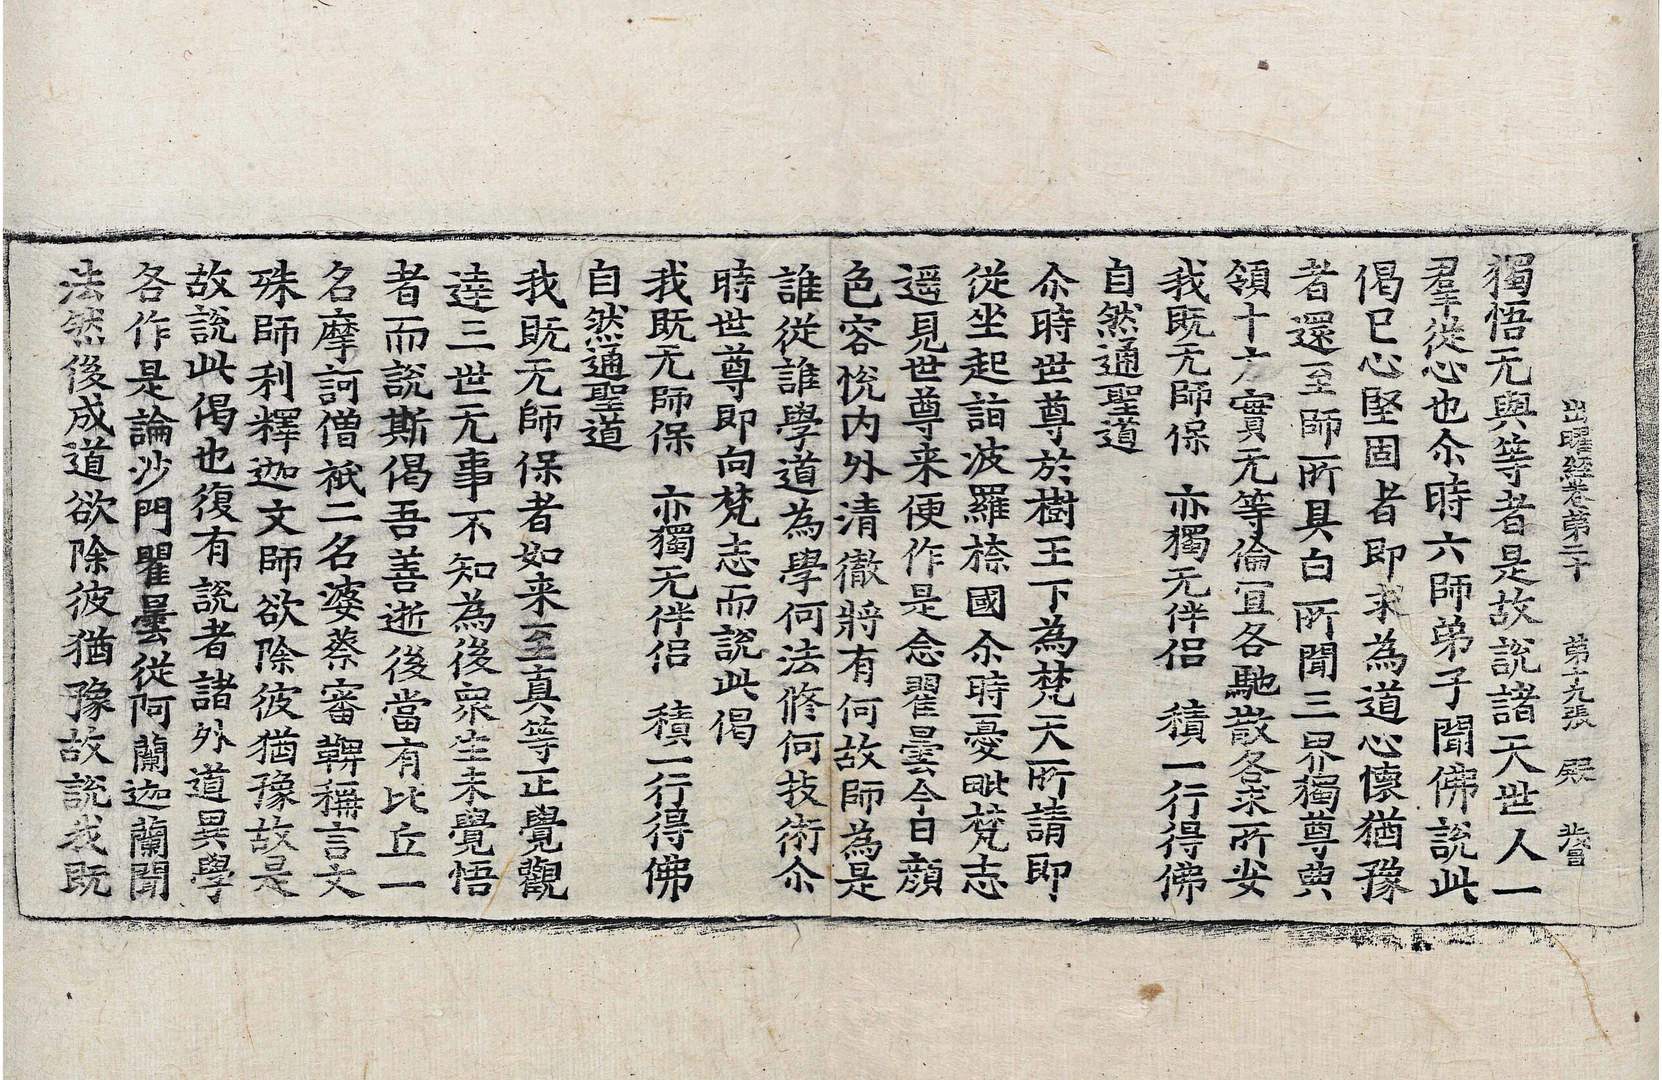 出曜經卷第二十 第十九張 殿
獨悟无與等者是故說諸天世人一
羣徒心也尒時六師弟子聞佛說此
偈已心堅固者即求為道心懷猶豫
者還至師所具白所聞三界獨尊典
領十方實无等倫宜各馳散各求所安
我既无師保 亦獨无伴侶 積一行得佛
自然通聖道
尒時世尊於樹王下為梵天所請即
從坐起詣波羅㮈國尒時憂毗梵志
遥見世尊来便作是念瞿曇今日顔
色容恱内外清徹將有何故師為是
誰從誰學道為學何法修何技術尒
時世尊即向梵志而說此偈
我既无師保 亦獨无伴侶 積一行得佛
自然通聖道
我既无師保者如来至真等正覺觀
達三世无事不知為後衆生未覺悟
者而說斯偈吾善逝後當有比丘一
名摩訶僧祇二名婆蔡審鞞稱言文
殊師利釋迦文師欲除彼猶豫故是
故說此偈也復有說者諸外道異學
各作是論沙門瞿曇從阿蘭迦蘭聞
法然後成道欲除彼猶豫故說我既